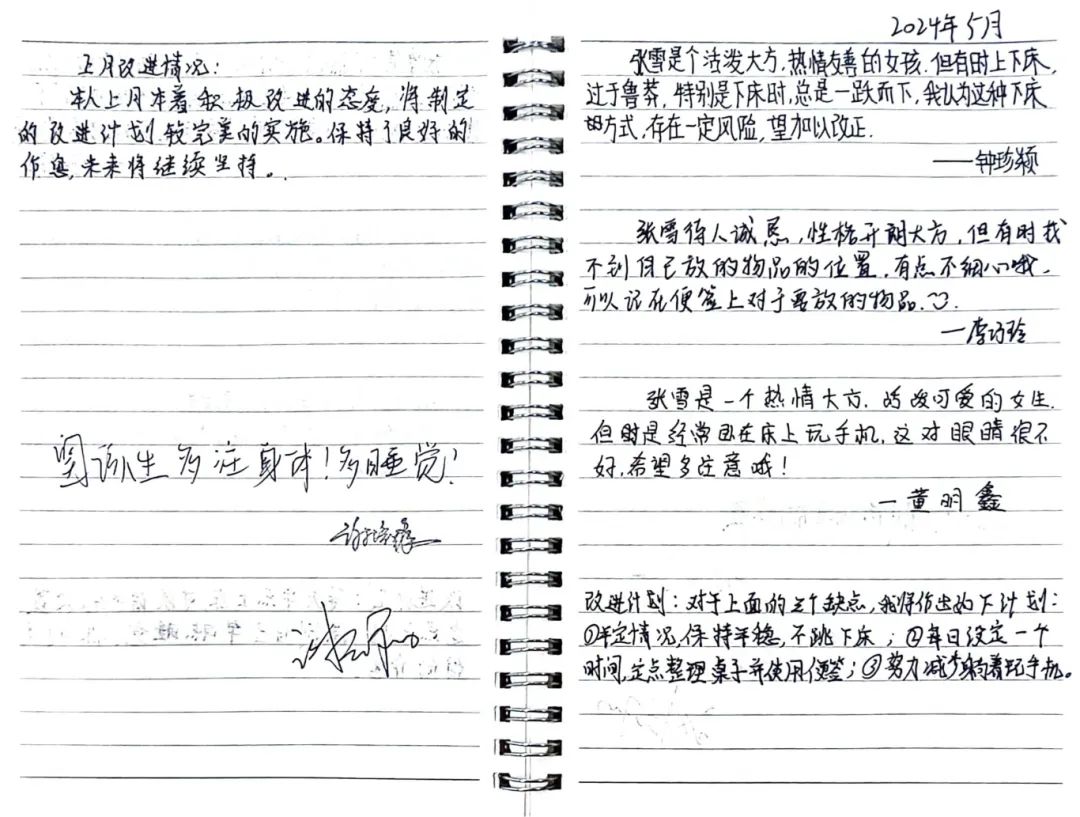 上月改进情况：
本人上月本着积极改进的态度，将制定
的改进计划较完美的实施。保持了良好的
作息，未来将继续坚持。
多注身体！多睡觉！
2024年5月
张雪是个活泼大方，热情友善的女孩，但有时上下床，
过于鲁莽，特别是下床时，总是一跃而下，我认为这种下床
的方式，存在一定风险，望加以改正．
——钟珍颖
张雪待人诚恳，性格开朗大方，但有时找
不到自己放的物品的位置，有点不细心哦，
可以记在便签上对于要放的物品．
—李巧玲
张雪是一个热情大方，活泼可爱的女生．
但时是经常因在床上玩手机，这对眼睛很不
好，希望多注意哦！
—黄明鑫
改进计划：对于上面的三个缺点，我将作出如下计划：
①牢定情况，保持平稳，不跳下床；②每日设定一个
时间，定点整理桌子并使用便签；③努力减少躺着玩手机。